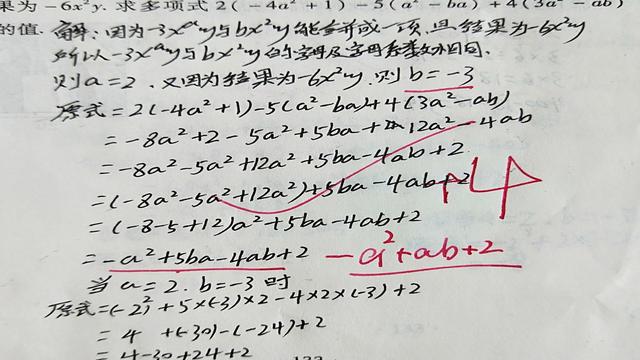 果为 -6x²y. 求多项式 2(-4a²+1)-5(a²-ba)+4(3a²-ab)
的值. 解:因为-3xᵃy与bx²y能合并成一项,且结果为-6x²y
所以-3xᵃy与bx²y的字母及字母系数相同.
则a=2. 又因为结果为-6x²y,则b=-3
原式=2(-4a²+1)-5(a²-ba)+4(3a²-ab)
=-8a²+2-5a²+5ba+12a²-4ab
=-8a²-5a²+12a²+5ba-4ab+2
=(-8a²-5a²+12a²)+5ba-4ab+2
=(-8-5+12)a²+5ba-4ab+2
=-a²+5ba-4ab+2 -a²+ab+2
当a=2.b=-3时
原式=(-2)²+5×(-3)×2-4×2×(-3)+2
=4+(-30)-(-24)+2
=4-30+24+2